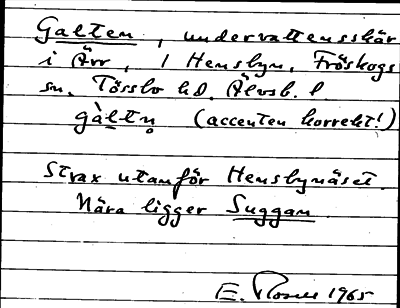 Galten, undervattensskär
i Ärr, 1 Hensbyn, Fröskogs
sn. Tössbo hd. Älvsb. l.
gàltn̥ (accenten korrekt!)
Strax utanför Hensbynäset.
Nära ligger Suggan.
E. 1965